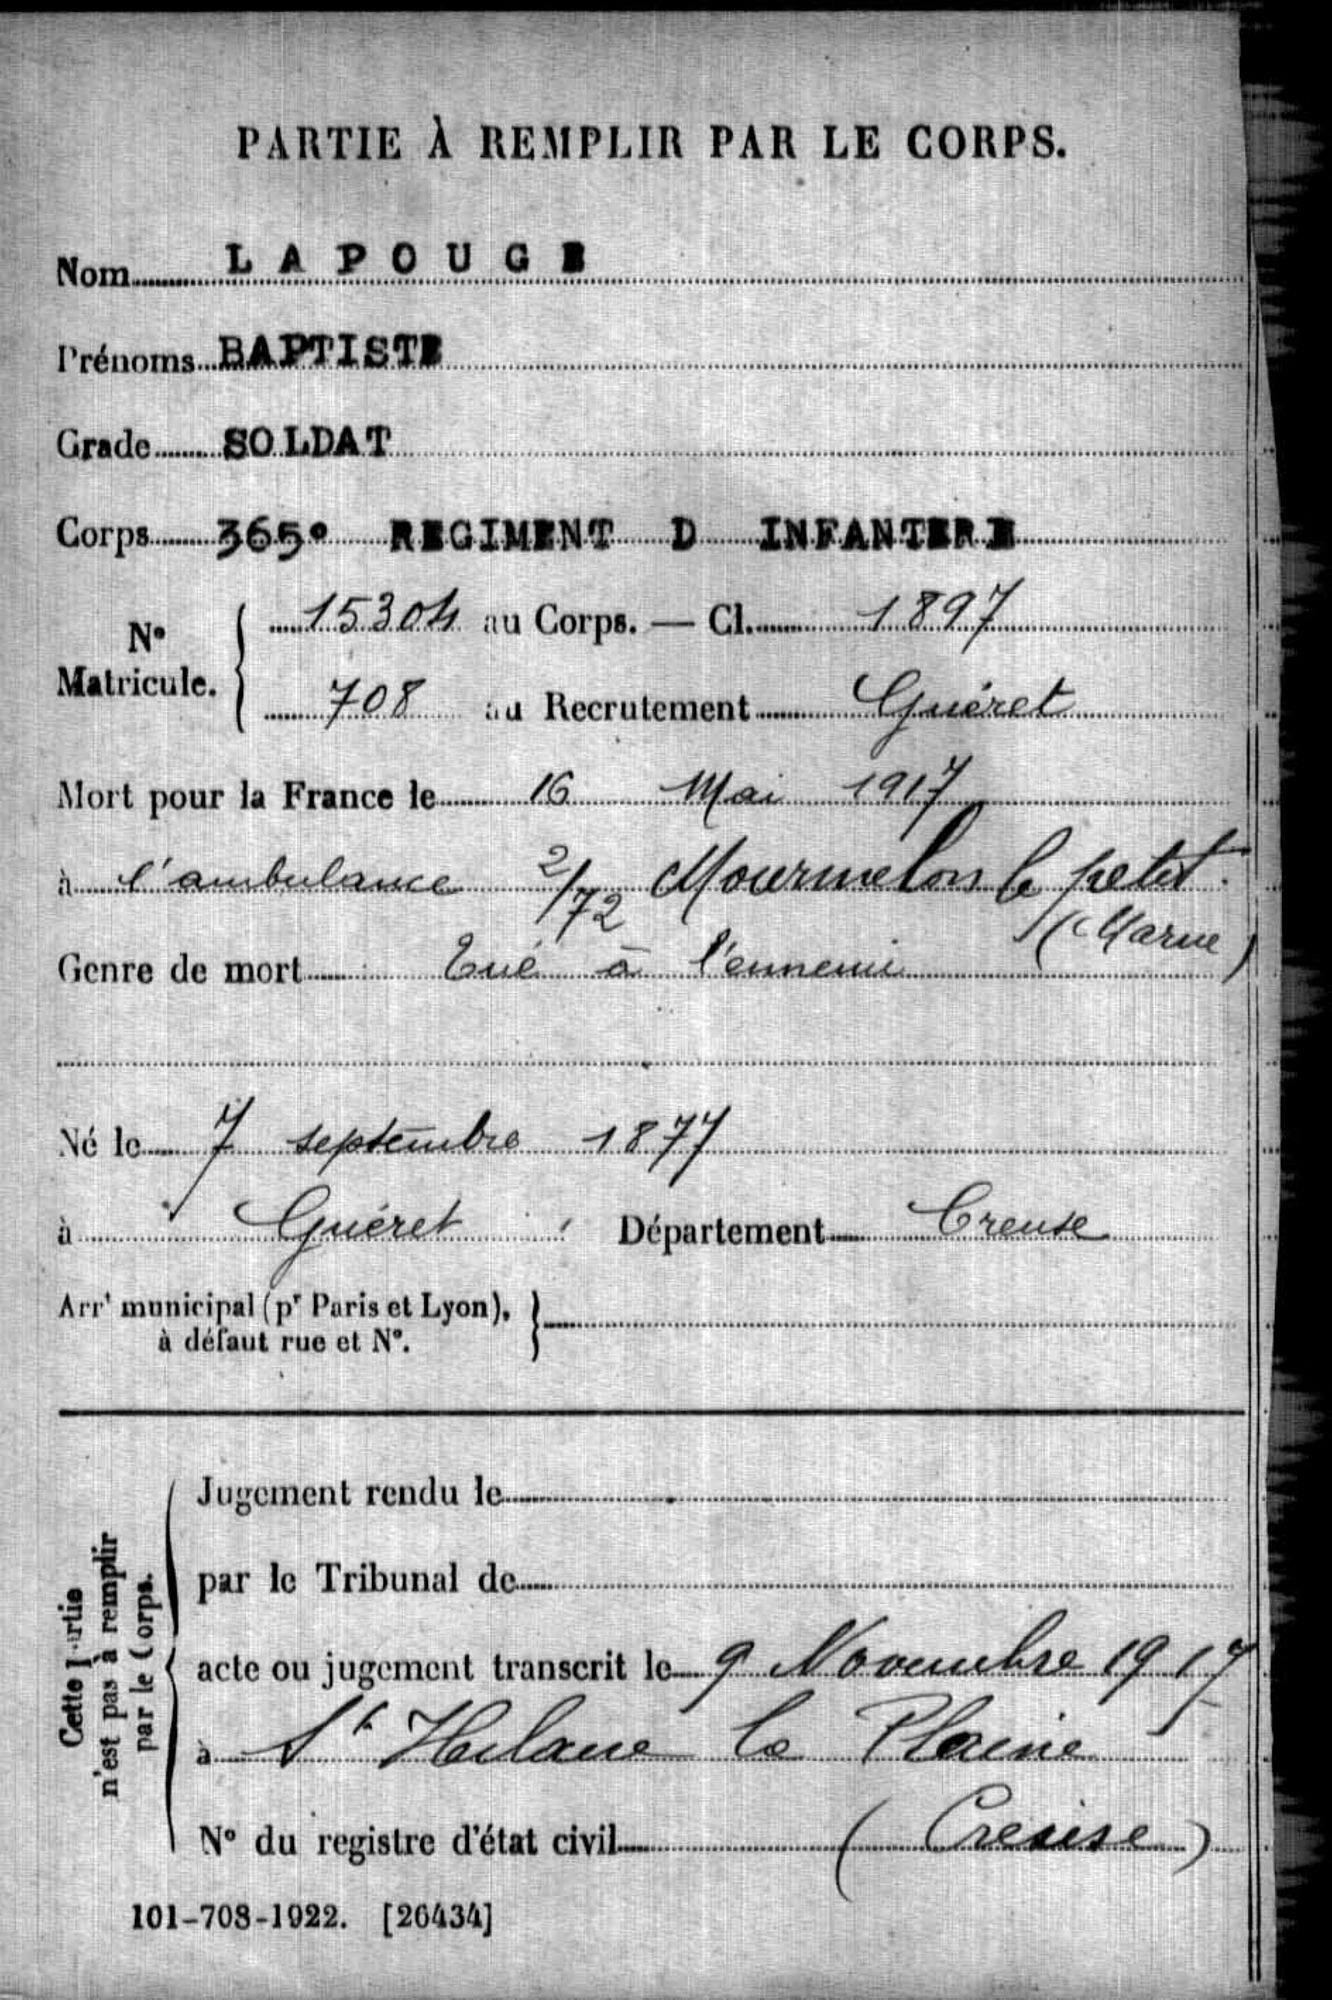 PARTIE À REMPLIR PAR LE CORPS.
Nom LAPOUGE
Prénoms BAPTISTE
Grade SOLDAT
Corps 365e REGIMENT D INFANTERE
N° Matricule. 15304 au Corps. — Cl. 1897
708 au Recrutement Guéret
Mort pour la France le 16 Mai 1917
à l'ambulance 2/72 Mourmelon le petit
(Marne)
Genre de mort Tué à l'ennemi
Né le 7 septembre 1877
à Guéret Département Creuse
Arrt municipal (pr Paris et Lyon),
à défaut rue et N°.
Cette partie
n'est pas à remplir
par le Corps.
Jugement rendu le
par le Tribunal de
acte ou jugement transcrit le 9 Novembre 1917
à St Hilaire la Plaine
N° du registre d'état civil (Creuse)
101-708-1922. [26434]